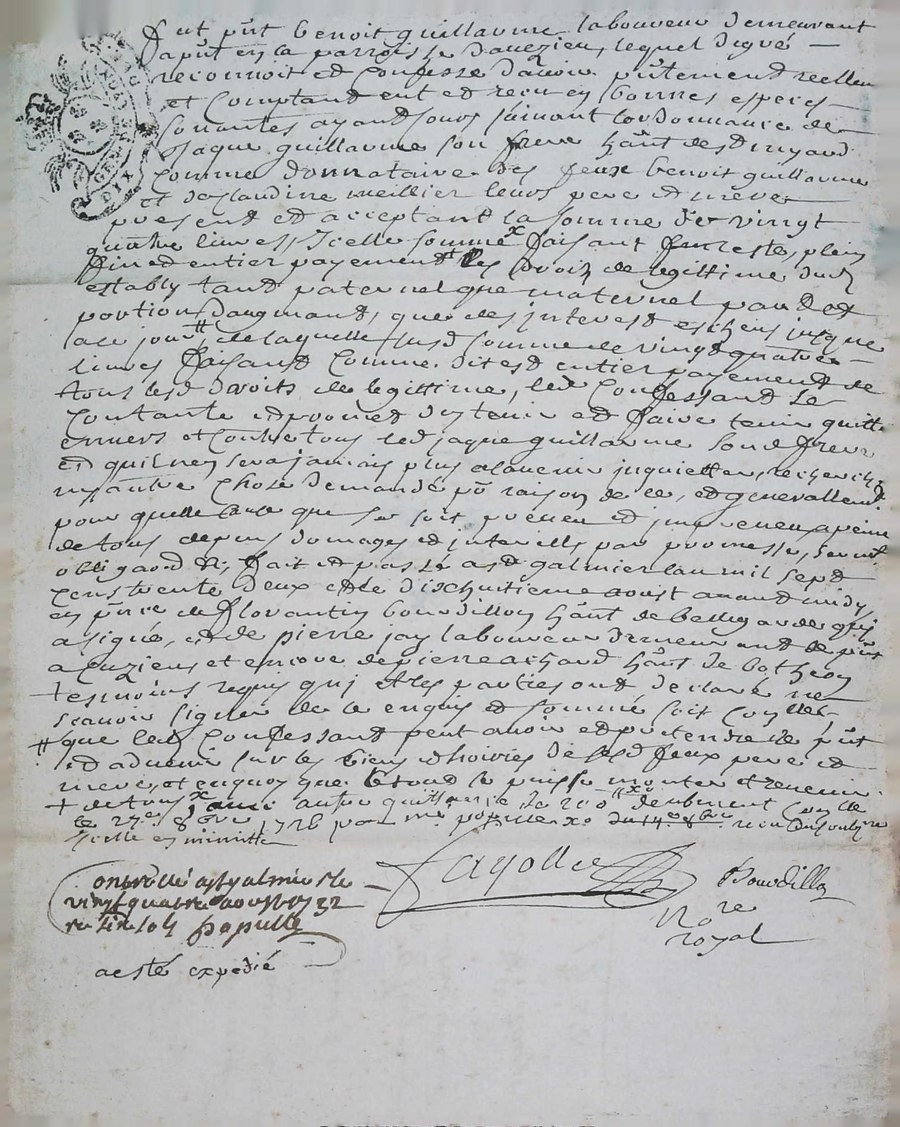 fut pnt benoit guillaume laboureur demeurant
apnt en la parroisse daveizieu, lequel de gré
reconnoit et confesse davoir pntement reellem
et comptand eut et receu en bonnes especes
sonnantes ayand cours suivant lordonnance de
Jaque guillaume son frere hant
comme donnataire des feux benoit guillaume
et meillier leurs pere et mere
present et acceptant la somme de vingt
quattre livres, Icelle somme faisant fin reste, plein
fin et entier payement des droitz de legittime dud
estably tand paternel que maternel part et
portion daugmand, que des interest escheus jusque
a ce jour # de laquelle susd somme de vingt quatre
livres faisand comme dit est entier payement de
tous lesd droits de legittime, led Confessand se
contante et promet den tenir et faire tenir quitte
envers et contre tous led jaque guillaume sond frere
et quil ney sera jamais plus alavenir inquietter, recherché
ny autre chose demandé pr raison de ce, et generallement
pour quelle cause que ce soit preveu et impreveu a peine
de tous depens domages et interests par promesse, serment
obligaon & fait et passé a st galmier lan mil sept
cens trente deux et le dixhuitieme aoust avand midy
en pnce de florantin bourdillon hant de bellegarde quj
a signé, et de pierre jay laboureur demeurant de pnt
a Cuzieu et encore de pierre achard hant de botheon
tesmoins requis quj et les parties ont declaré ne
scavoir signer de ce enquis et sommé soit Conllé
# que led Confessant peut avoir et pretendre de pnt
et advenir sur les biens et hoiries de sesd feux pere et
mere, et enquoy que le tout se puisse monter et revenir
+ de tous
le 27e 8bre 1726
Icelle en minutte
Controllé a st galmier le
vingt quatre aoust 1732
re papulle
a esté expedié
fayolle
Bourdillon
Nore
royal
DIX